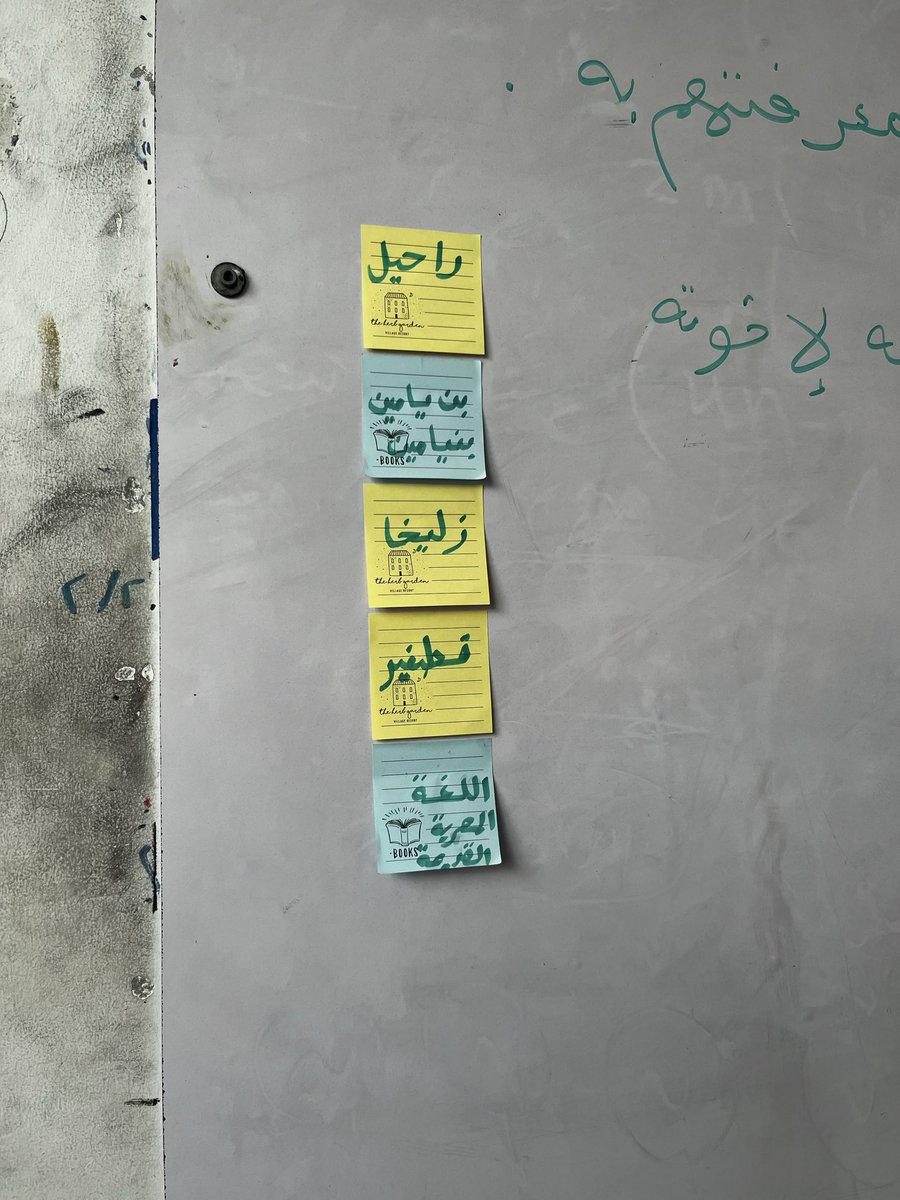 معرفتهم به .
ه لإخوته
راحيل
the herb garden
VILLAGE RESORT
بن يامين
بنيامين
• BOOKS •
زليخا
the herb garden
VILLAGE RESORT
٢/٢
قطفير
the herb garden
VILLAGE RESORT
اللغة
المصرية
القديمة
• BOOKS •